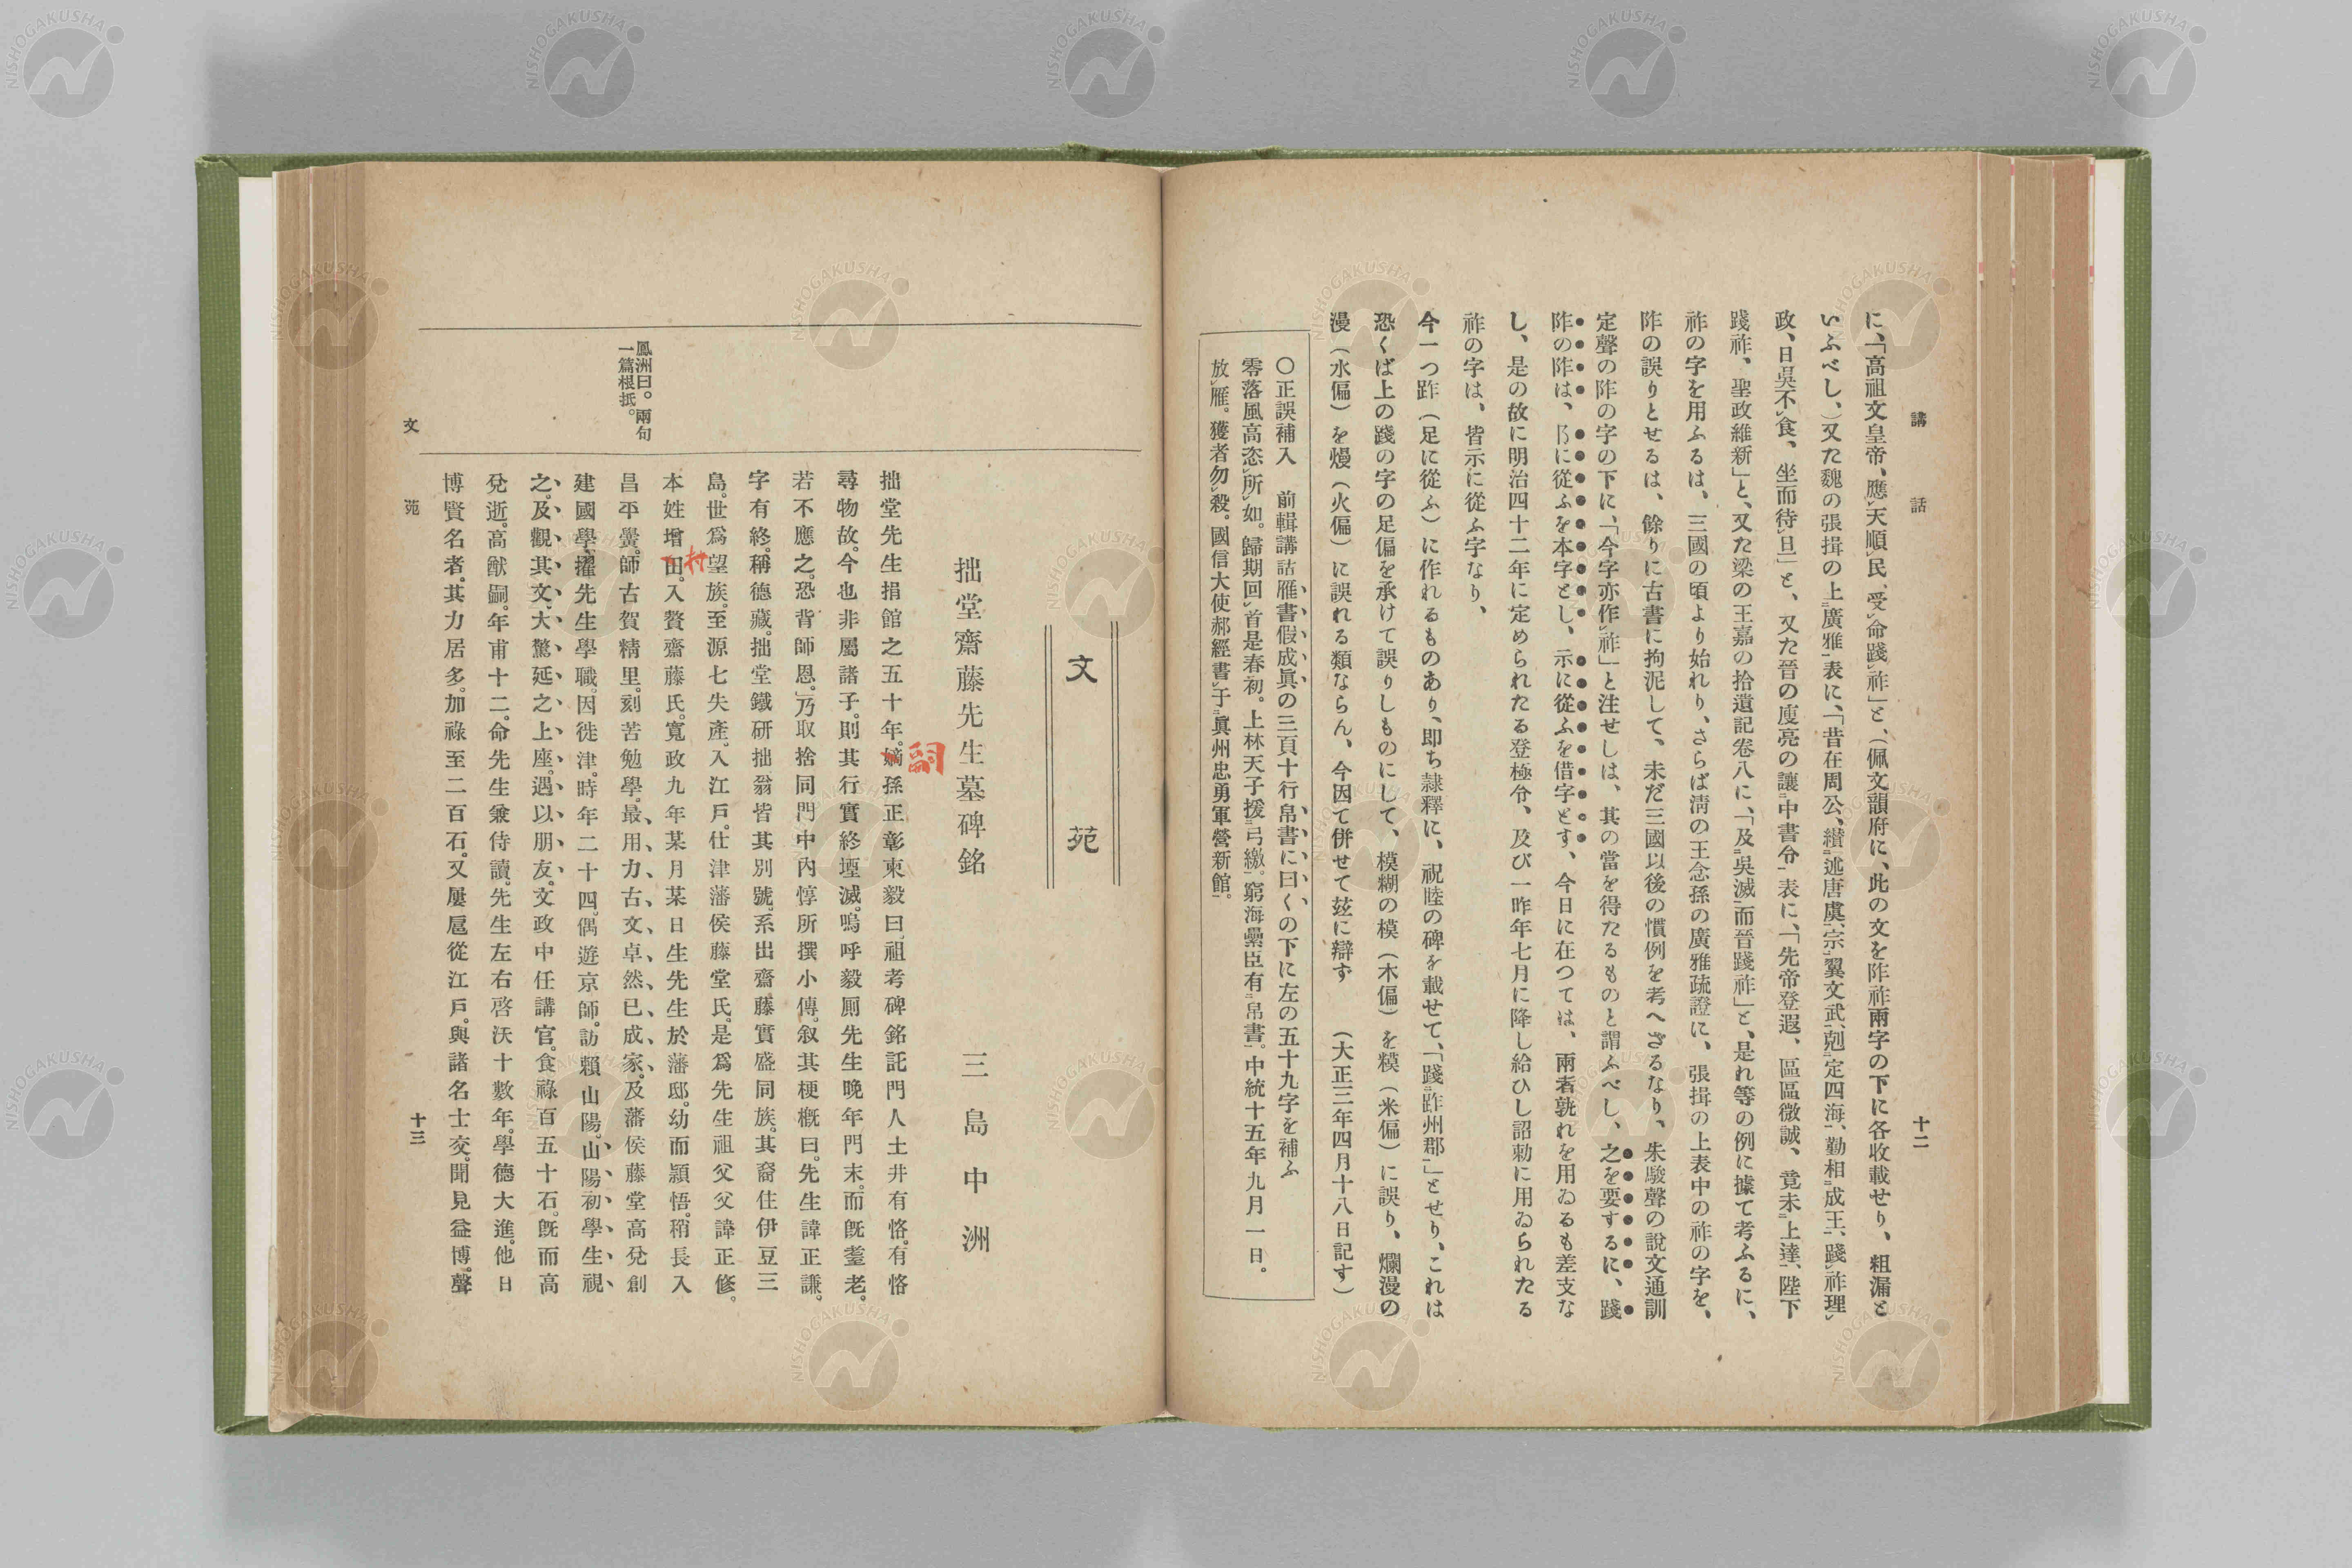 講話
十二
に、「高祖文皇帝、應レ天順レ民、受レ命踐レ祚」と、（佩文韻府に、此の文を阼祚兩字の下に各收載せり、粗漏と
いふべし、）又た魏の張揖の上二廣雅一表に、「昔在周公、纉二述唐虞一、宗二翼文武一、剋二定四海一、勤相二成王一、踐レ祚理レ
政、日昃不レ食、坐而待レ旦」と、又た晉の庾亮の讓二中書令一表に、「先帝登遐、區區微誠、竟未二上達一、陛下
踐祚、聖政維新」と、又た梁の王嘉の拾遺記卷八に、「及二吳滅一而晉踐祚」と、是れ等の例に據て考ふるに、
祚の字を用ふるは、三國の頃より始れり、さらば淸の王念孫の廣雅疏證に、張揖の上表中の祚の字を、
阼の誤りとせるは、餘りに古書に拘泥して、未だ三國以後の慣例を考へざるなり、朱駿聲の說文通訓
定聲の阼の字の下に、「今字亦作レ祚」と注せしは、其の當を得たるものと謂ふべし、之を要するに、踐
阼の阼は、阝に從ふを本字とし、示に從ふを借字とす、今日に在つては、兩者孰れを用ゐるも差支な
し、是の故に明治四十二年に定められたる登極令、及び一昨年七月に降し給ひし詔勅に用ゐられたる
祚の字は、皆示に從ふ字なり、
今一つ踖（足に從ふ）に作れるものあり、卽ち隷釋に、祝睦の碑を載せて、「踐二踖州郡一」とせり、これは
恐くば上の踐の字の足偏を承けて誤りしものにして、模糊の模（木偏）を糢（米偏）に誤り、爛漫の
漫（水偏）を熳（火偏）に誤れる類ならん、今因て併せて玆に辯ず　（大正三年四月十八日記す）
〇正誤補入　前輯講話雁書假成眞の三頁十行帛書に曰くの下に左の五十九字を補ふ
零落風高恣レ所レ如。歸期回レ首是春初。上林天子援二弓繳一。窮海纍臣有二帛書一。中統十五年九月一日。
放レ雁。獲者勿レ殺。國信大使郝經書二于眞州忠勇軍營新館一。
文苑
拙堂齋藤先生墓碑銘
三島中洲
拙堂先生捐館之五十年。嫡孫正彰東毅曰。祖考碑銘託門人土井有恪。有恪
嗣
尋物故。今也非屬諸子。則其行實終堙滅。嗚呼毅厠先生晚年門末。而旣耋老。
若不應之。恐背師恩。」乃取捨同門中內惇所撰小傳。叙其梗槪曰。先生諱正謙。
字有終。稱德藏。拙堂鐵硏拙翁皆其別號。系出齋藤實盛同族。其裔住伊豆三
島。世爲望族。至源七失產。入江戶。仕津藩侯藤堂氏。是爲先生祖父。父諱正修。
本姓增田。入贅齋藤氏。寬政九年某月某日生先生於藩邸。幼而穎悟。稍長入
村
昌平黌。師古賀精里。刻苦勉學。最用力古文。卓然已成家。及藩侯藤堂高兌創
建國學。擢先生學職。因徙津。時年二十四。偶遊京師。訪賴山陽。山陽初學生視
之。及觀其文。大驚延之上座。遇以朋友。文政中任講官。食祿百五十石。旣而高
兌逝。高猷嗣。年甫十二。命先生兼侍讀。先生左右啓沃十數年。學德大進。他日
博賢名者。其力居多。加祿至二百石。又屢扈從江戶。與諸名士交。聞見益博。聲
鳳洲曰。兩句
一篇根抵。
文苑
十三